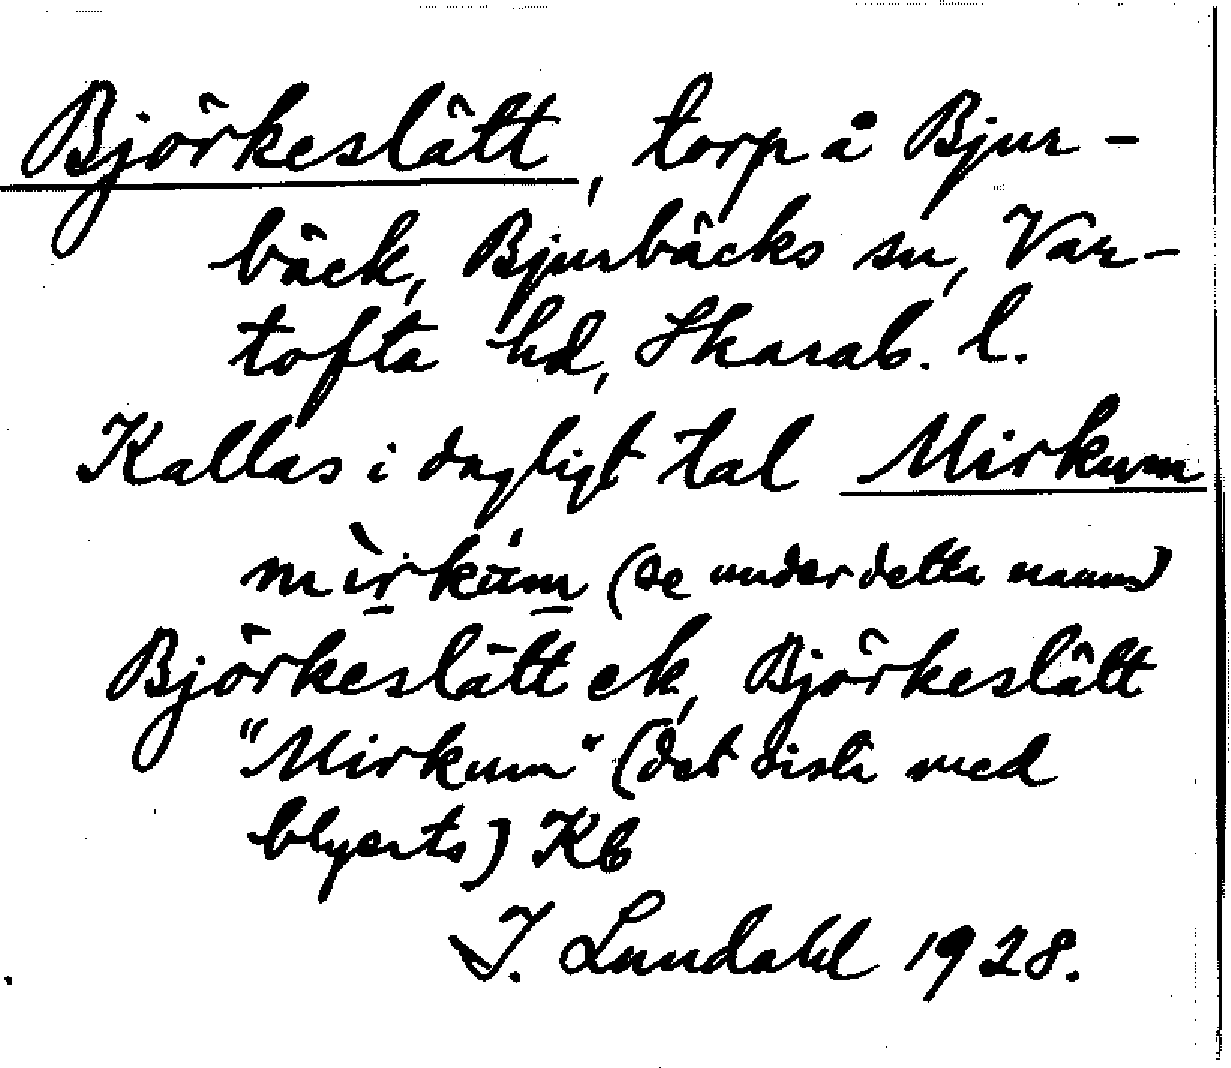 Björkeslätt, torp å Bjur-
bäck, Bjurbäcks sn, Var-
tofta hd, Skarab. l.
Kallas i dagligt tal Mirkum
(se under detta namn)
Björkeslätt ek, Björkeslätt
"Mirkum" (det sista med
blyerts) Kb
I. Lundahl 1928.